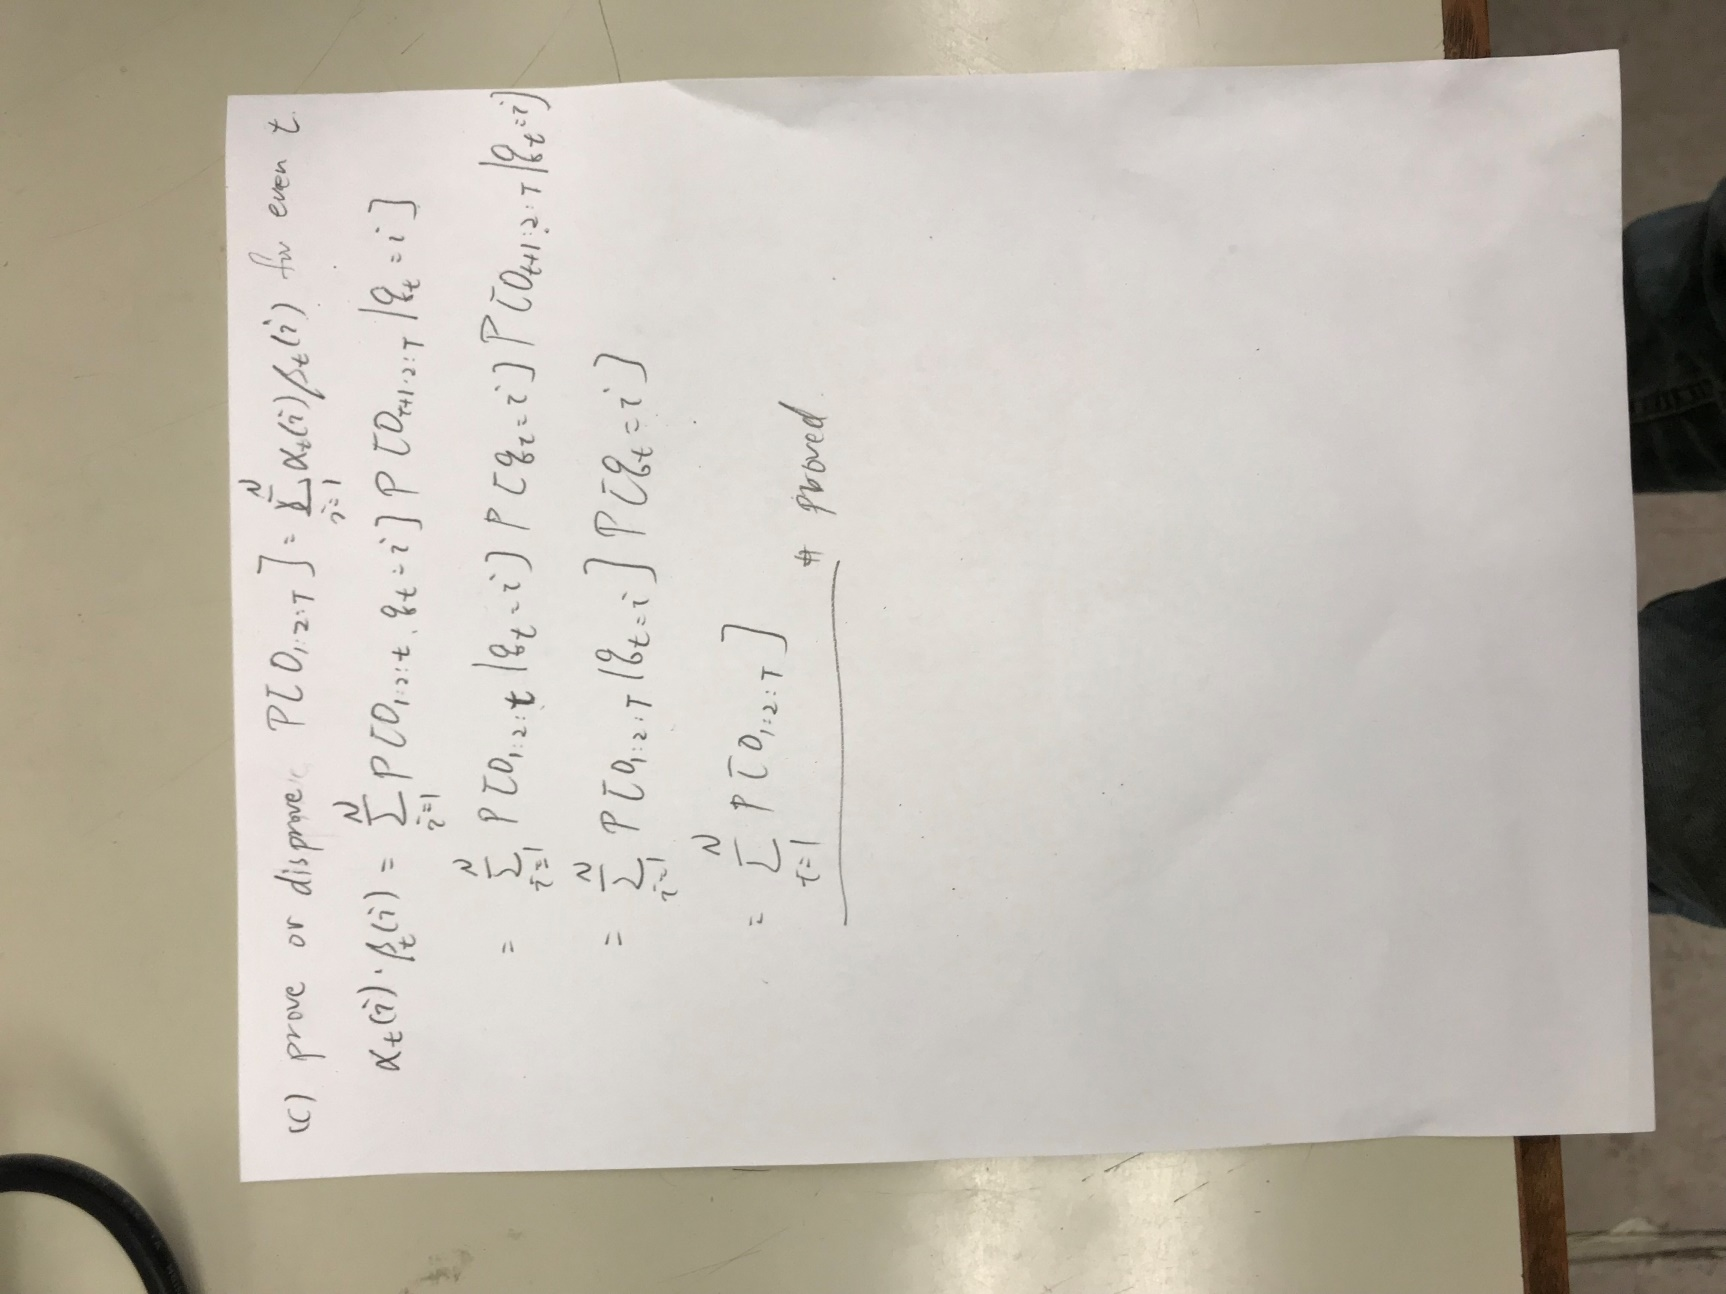 (c) prove or disprove P[O₁:₂:T] = ∑ᵢ₌₁ᴺ αₜ(i)βₜ(i) for even t.
αₜ(i)·βₜ(i) = ∑ᵢ₌₁ᴺ P[O₁:₂:ₜ, qₜ=i] P[Oₜ₊₁:₂:T | qₜ=i]
= ∑ᵢ₌₁ᴺ P[O₁:₂:ₜ | qₜ=i] P[qₜ=i] P[Oₜ₊₁:₂:T | qₜ=i]
= ∑ᵢ₌₁ᴺ P[O₁:₂:T | qₜ=i] P[qₜ=i]
= ∑ᵢ₌₁ᴺ P[O₁:₂:T]
# proved